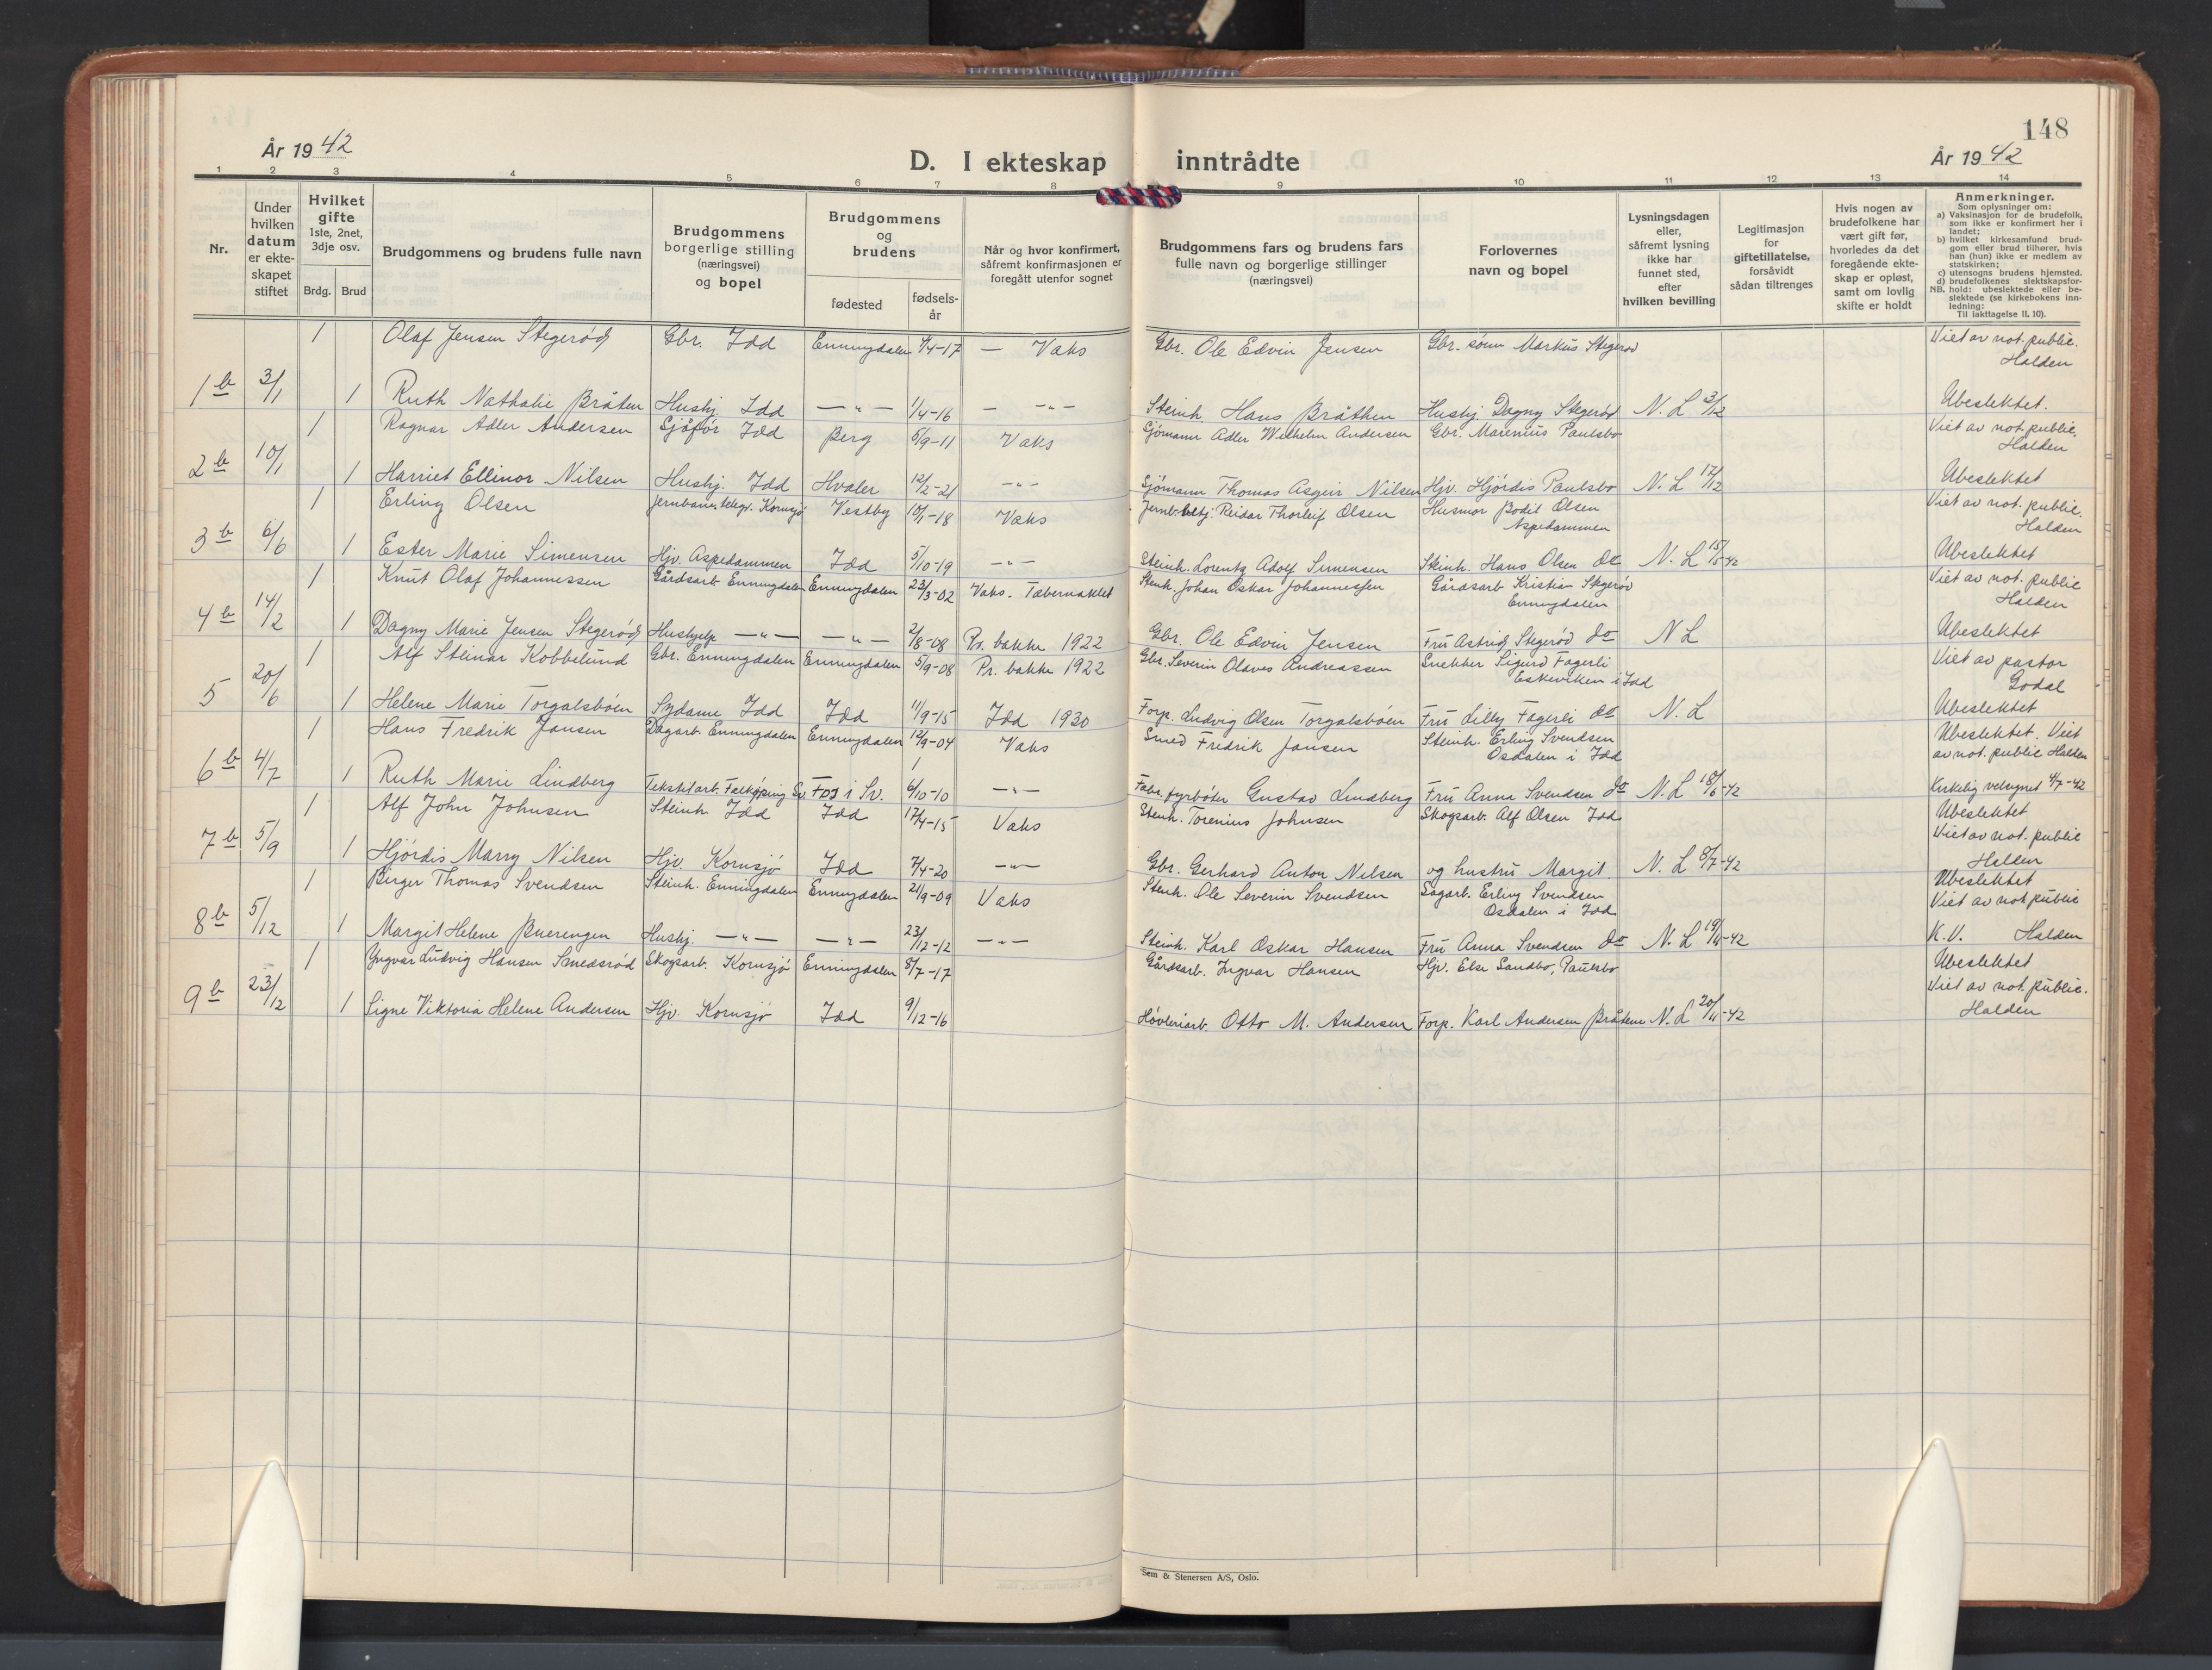 148
År 19 42
D. I ekteskap inntrådte
År 19 42
1 2 3 4 5 6 7 8 9 10 11 12 13 14
Nr.
Under hvilken datum er ekte-skapet stiftet
Hvilket gifte 1ste, 2net, 3dje osv.
Brdg. Brud
Brudgommens og brudens fulle navn
Brudgommens borgerlige stilling (næringsvei) og bopel
Brudgommens og brudens
fødested
fødsels-år
Når og hvor konfirmert, såfremt konfirmasjonen er foregått utenfor sognet
Brudgommens fars og brudens fars fulle navn og borgerlige stillinger (næringsvei)
Forlovernes navn og bopel
Lysningsdagen eller, såfremt lysning ikke har funnet sted, efter hvilken bevilling
Legitimasjon for giftetillatelse, forsåvidt sådan tiltrenges
Hvis nogen av brudefolkene har vært gift før, hvorledes da det foregående ekte-skap er opløst, samt om lovlig skifte er holdt
Anmerkninger.
Som oplysninger om:
a) Vaksinasjon for de brudefolk, som ikke er konfirmert her i landet;
b) hvilket kirkesamfund brud-gom eller brud tilhører, hvis han (hun) ikke er medlem av statskirken;
c) utensogns brudens hjemsted.
d) brudefolkenes slektskapsfor-hold: ubeslektede eller be-slektede (se kirkebokens inn-ledning:
NB.
Til iakttagelse II. 10).
1 Olaf Jensen Stegerød Gbr. Idd Enningdalen 1/4-17 — Vaks Gbr. Ole Edvin Jensen Gbr. sønn Markus Stegerød Viet av not. public. Halden
1b 3/1 1 Ruth Nathalie Bråten Hushj. Idd — " — 1/4-16 — - " - Steinh. Hans Bråthen Hushj. Dagny Stegerød N. L 3/12 Ubeslektet.
1 Ragnar Adler Andersen Sjåfør Idd Berg 5/9-11 Vaks Sjömann Adler Wilhelm Andersen Gbr. Marenius Paulsbo Viet av not. public. Halden
2b 10/1 1 Harriet Ellinor Nilsen Hushj. Idd Hvaler 12/2-21 - " - Sjömann Thomas Asgeir Nilsen Hjv. Hjördis Paulsbo N. L 17/12 Ubeslektet
1 Erling Olsen Jernbane telegr. Kornsjø Vestby 10/1-18 Vaks Jernb. betj. Reidar Thorleif Olsen Husmor Bodil Olsen Aspedammen Viet av not. public. Halden
3b 6/6 1 Ester Marie Simensen Hjv. Aspedammen Idd 5/10-19 - " - Steinh. Lorentz Adolf Simensen Steinh. Hans Olsen do N. L 15/5-42 Ubeslektet
1 Knut Olaf Johannessen Gårdsarb. Enningdalen Enningdalen 23/3-02 Vaks. Tabernaklet Stenh. Johan Oskar Johannessen Gårdsarb Kristian Stegerød Enningdalen Viet av not. public Halden
4b 14/2 1 Dagny Marie Jensen Stegerød Hushjelp — " — — " — 2/8-08 Pr. bakke 1922 Gbr. Ole Edvin Jensen Fru Astrid Stegerød do N L Ubeslektet
1 Alf Steinar Kobbelund Gbr. Enningdalen Enningdalen 5/9-08 Pr. bakke 1922 Gbr. Severin Olaves Andreassen Snekker Sigurd Fagerli Eskeviken i Idd Viet av pastor Godal
5 20/6 1 Helene Marie Torgalsbøen Sydame Idd Idd 11/9-15 Idd 1930 Forp. Ludvig Olsen Torgalsbøen Fru Lilly Fagerli do N. L Ubeslektet
1 Hans Fredrik Jansen Dagarb. Enningdalen Enningdalen 12/9-04 Vaks Smed Fredrik Jansen Steinh. Erling Svendsen Osdalen i Idd Ubeslektet. Viet av not. public Halden
6b 4/7 1 Ruth Marie Lindberg Tekstilarb. Falköping Sv. Foss i Sv. 6/10-10 - " - Fabr. fyrbøter Gustav Lindberg Fru Anna Svendsen do N. L 18/6-42 Kirkelig velsignet 4/7-42
1 Alf John Johnsen Steinh. Idd Idd 17/4-15 Vaks Stenh. Torenius Johnsen Skogsarb. Alf Olsen Idd Ubeslektet Viet av not. public Halden
7b 5/9 1 Hjördis Marry Nilsen Hjv. Kornsjö Idd 7/4-20 - " - Gbr. Gerhard Anton Nilsen og hustru Margit N. L 8/7-42
1 Birger Thomas Svendsen Steinh. Enningdalen Enningdalen 21/9-09 Vaks Stenh. Ole Severin Svendsen Sagarb. Erling Svendsen Osdalen i Idd Ubeslektet Viet av not public
8b 5/12 1 Margit Helene Buerengen Hushj. — " — — " — 23/12-12 - " - Steinh. Karl Oskar Hansen Fru Anna Svendsen do N. L 19/11-42 K.V. Halden
1 Yngvar Ludvig Hansen Smedsrød Skogsarb. Kornsjö Enningdalen 8/7-17 Gårdsarb. Ingvar Hansen Hjv. Else Sandbo, Paulsbo Ubeslektet Viet av not. public.
9b 23/12 1 Signe Viktoria Helene Andersen Hjv. Kornsjö Idd 9/12-16 Høvleriarb. Otto M. Andersen Forp. Karl Andersen Bråtene N. L 20/11-42 Halden
Sem & Stenersen A/S, Oslo.